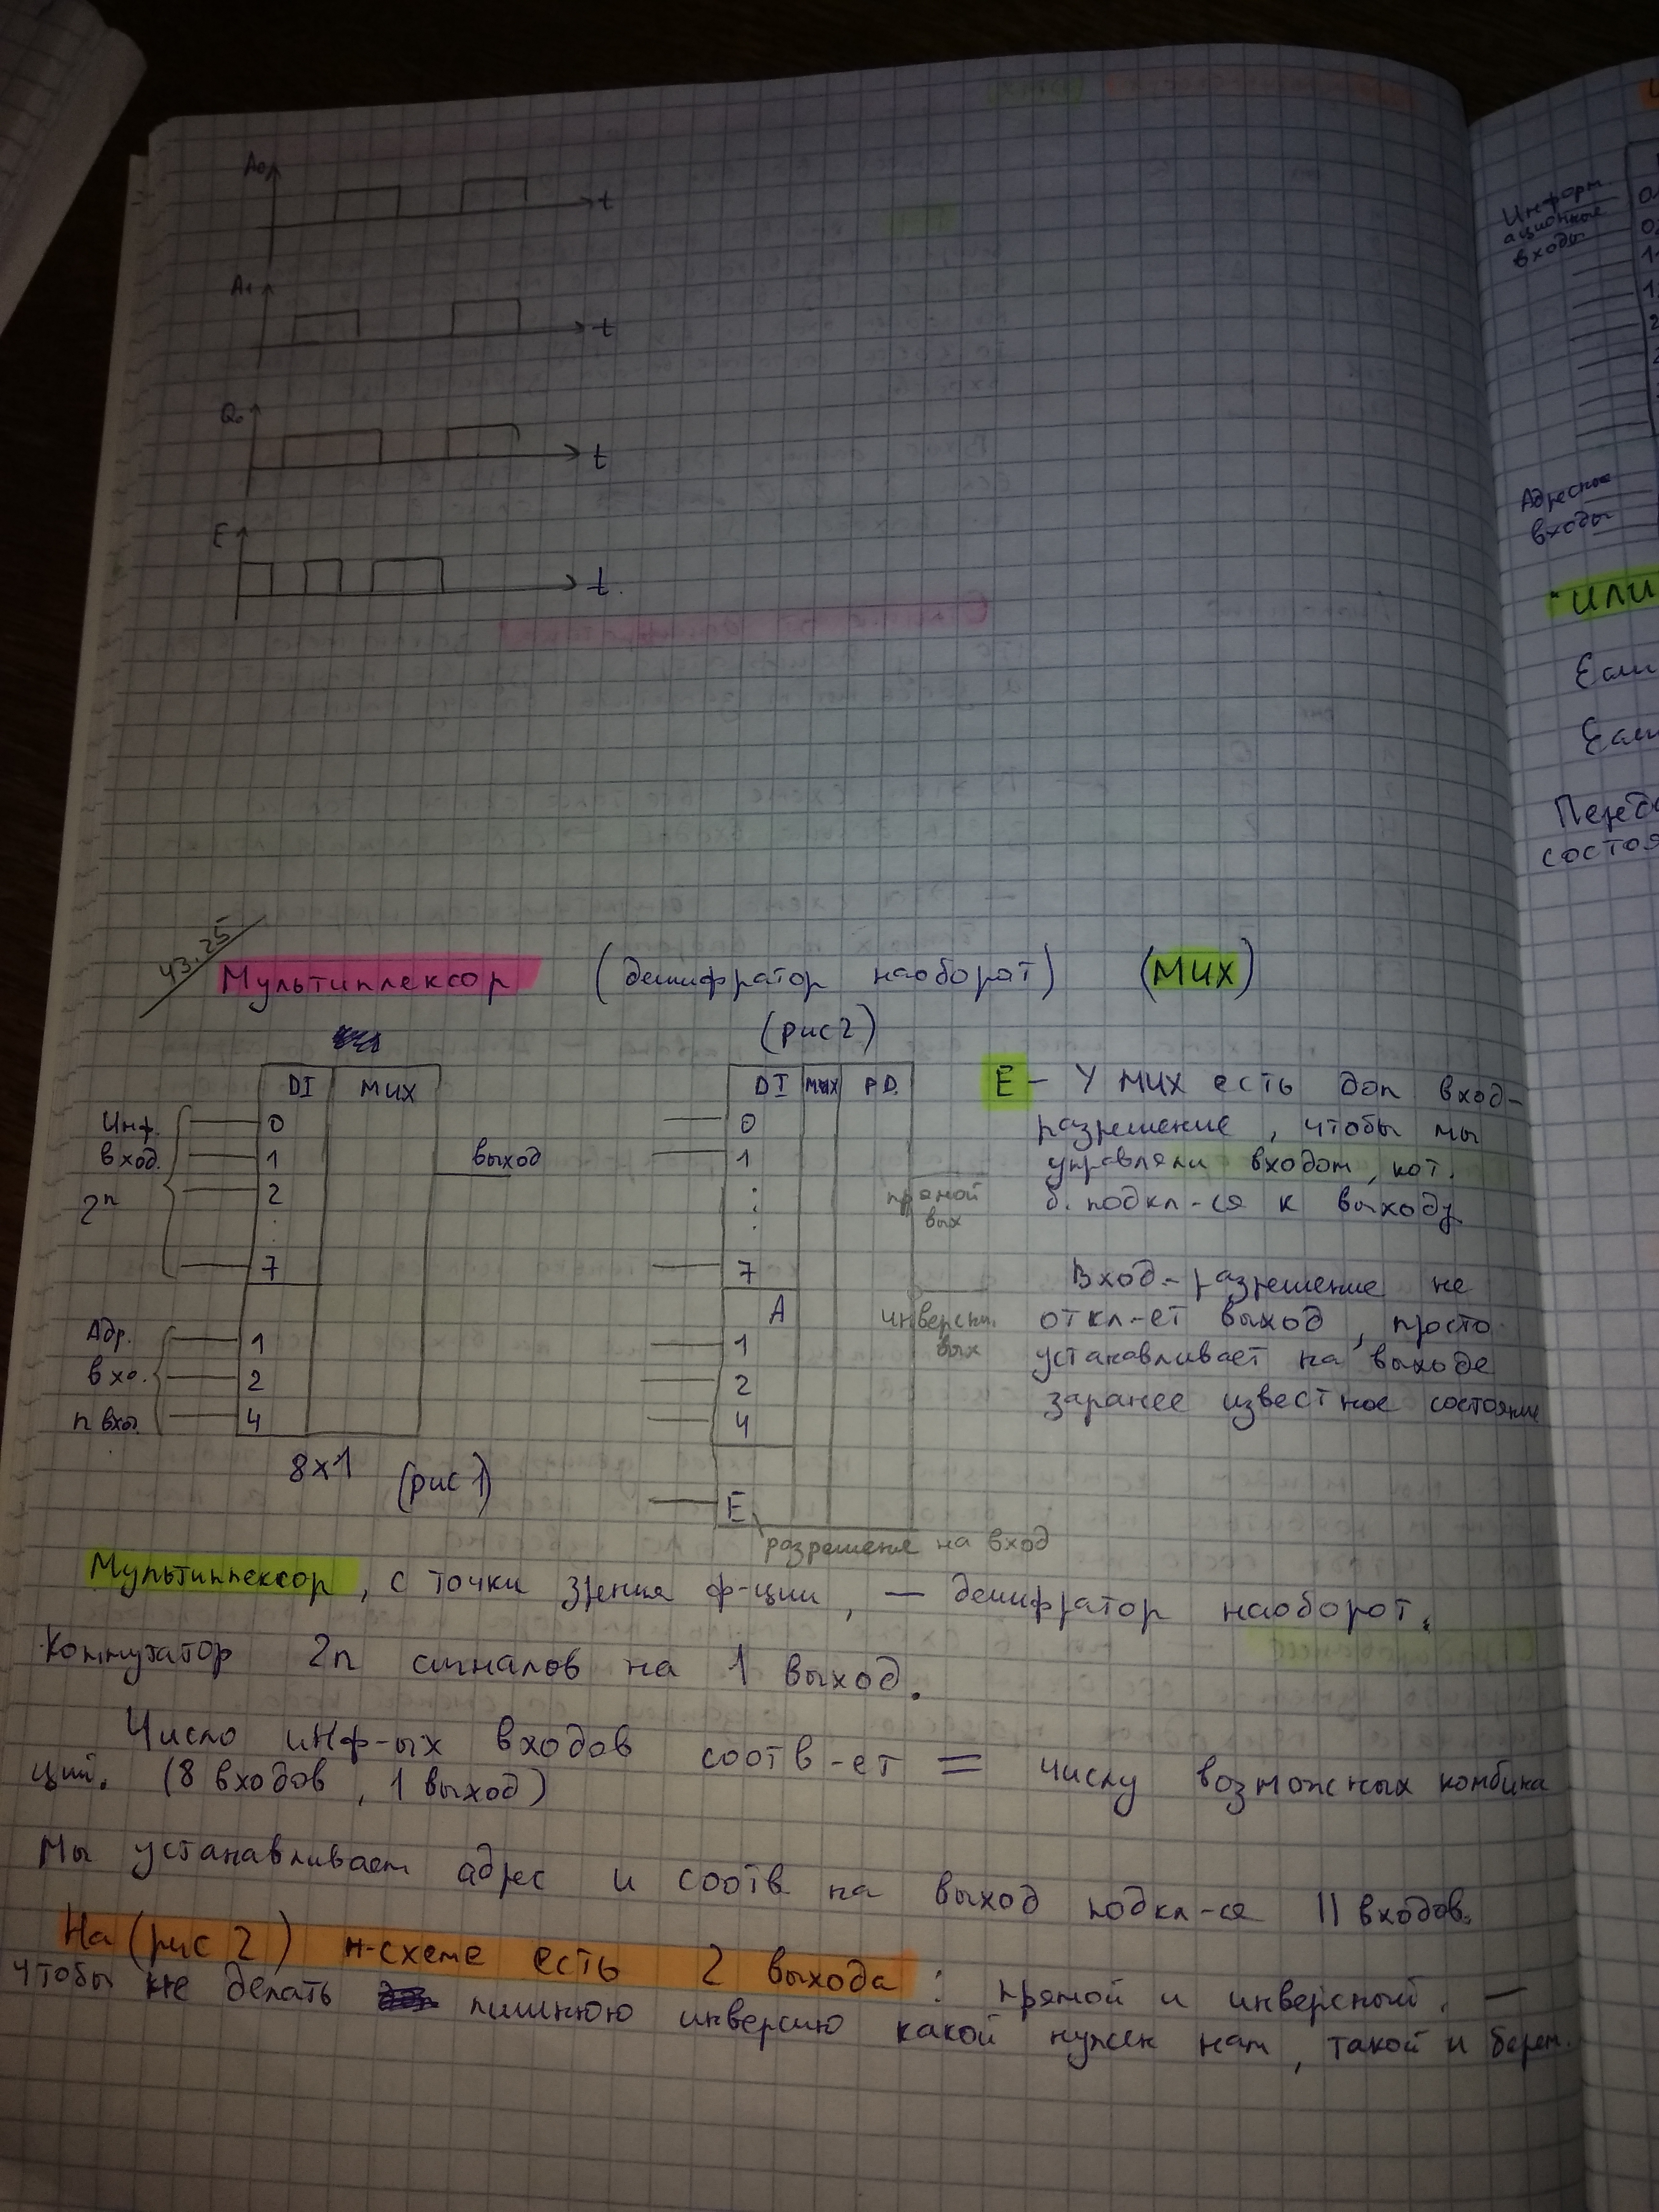 A₀ t
A₁ t
Q₀ t
E t.
43.25
Мультиплексор (дешифратор наоборот) (MUX)
(рис 2)
DI MUX
Инф. 0
вход. 1 выход
2ⁿ 2
:
7
Адр. 1
вхо. 2
n вхо. 4
8x1 (рис 1)
DI MUX
0
1
:
7
A
1
2
4
E
прямой
вых
инверсн.
вых
разрешение на вход
E – У MUX есть доп вход-
разрешение, чтобы мы
управляли входом, кот.
б. подкл-ся к выходу
Вход-разрешение не
откл-ет выход, просто
устанавливает на выходе
заранее известное состояние
Мультиплексор, с точки зрения ф-ции, — дешифратор наоборот.
Коммутатор 2n сигналов на 1 выход.
Число инф-ых входов соотв-ет = числу возможных комбина
ций. (8 входов, 1 выход)
Мы устанавливаем адрес и соотв на выход подкл-ся 11 входов.
На (рис 2) н-схеме есть 2 выхода: прямой и инверсный. —
чтобы не делать лишнюю инверсию какой нужен нам, такой и берем.
Информ.
ационные
входы
Адресные
входы
"ИЛИ
Если
Если
состоя